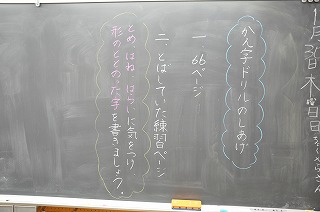 かん字ドリルのしあげ
一 66ページ
二、とばしていた練習ページ
とめ、はね、はらいに気をつけ
形のととのった字を書きましょう。